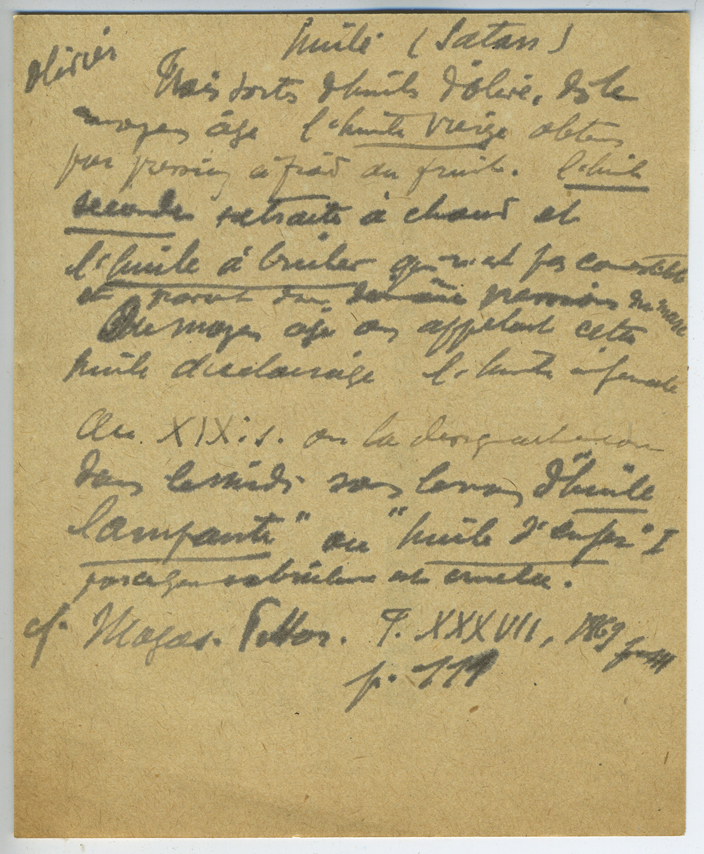 Huile (Satan)
Olivier
Trois sortes d'huile d'olive, dès le
moyen âge l'huile vierge obtenue
par pression à froid du fruit. l'huile
seconde extraite à chaud et
l'huile à brûler qui n'est pas comestible
et provient d'une dernière pression du marc
Au moyen âge on appelait cette
huile d'éclairage l'huile infernale
Au XIXe s. on la désignait encore
dans le midi sous le nom d'"huile
lampante" ou "huile d'enfer"
parce que sa brûlure est cruelle.
cf. Magas. Pittor. T. XXXVII, 1869
p. 111